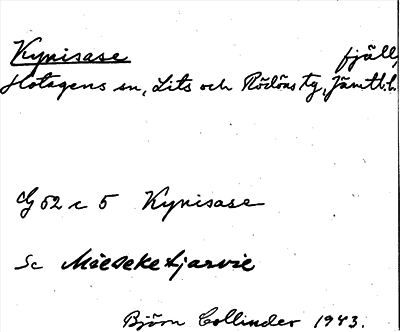 Kynisase fjäll,
Hotagens sn, Lits och Rödöns tg, Jämtl. l.
G 52 c 5 Kynisase
Sc Mieseketjarvie
Björn Collinder 1943.